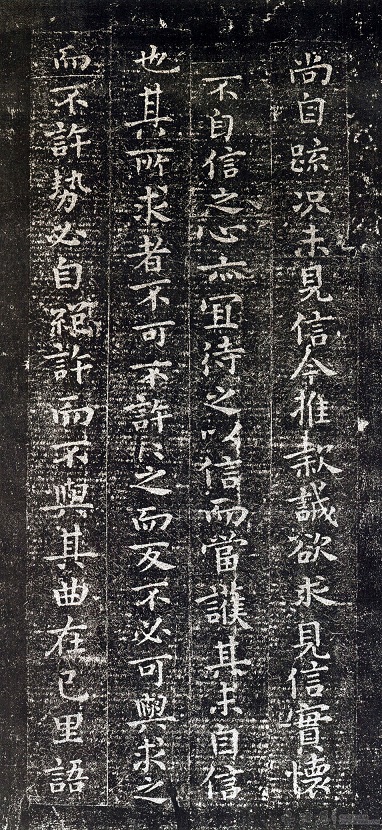 尚自踈况未見信今推款誠欲求見信實懷
不自信之心亦宜待之以信而當護其未自信
也其所求者不可不許許之而反不必可與求之
而不許勢必自絕許而不與其曲在己里語